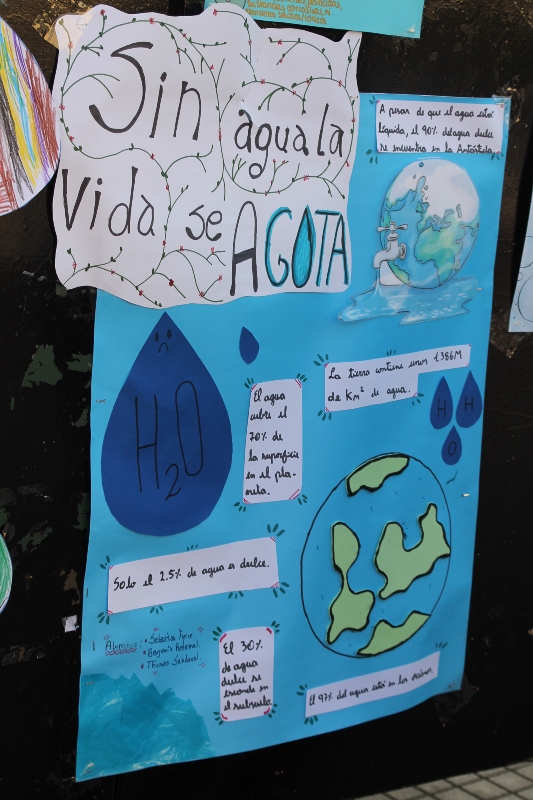 sustancias corrosivas, ni
Sin
agua la
Vida se
AGOTA
A pesar de que el agua está
líquida, el 90% del agua dulce
se encuentra en la Antártida.
La tierra contiene unos 1386M
de Km² de agua.
El agua
cubre el
70% de
la superficie
en el pla-
neta.
H₂O
H H
O
Solo el 2.5% de agua es dulce.
Alumnos:
• Thomas Sandoval.
El 30%
de agua
dulce se
esconde en
el subsuelo
El 97% del agua está en los océanos